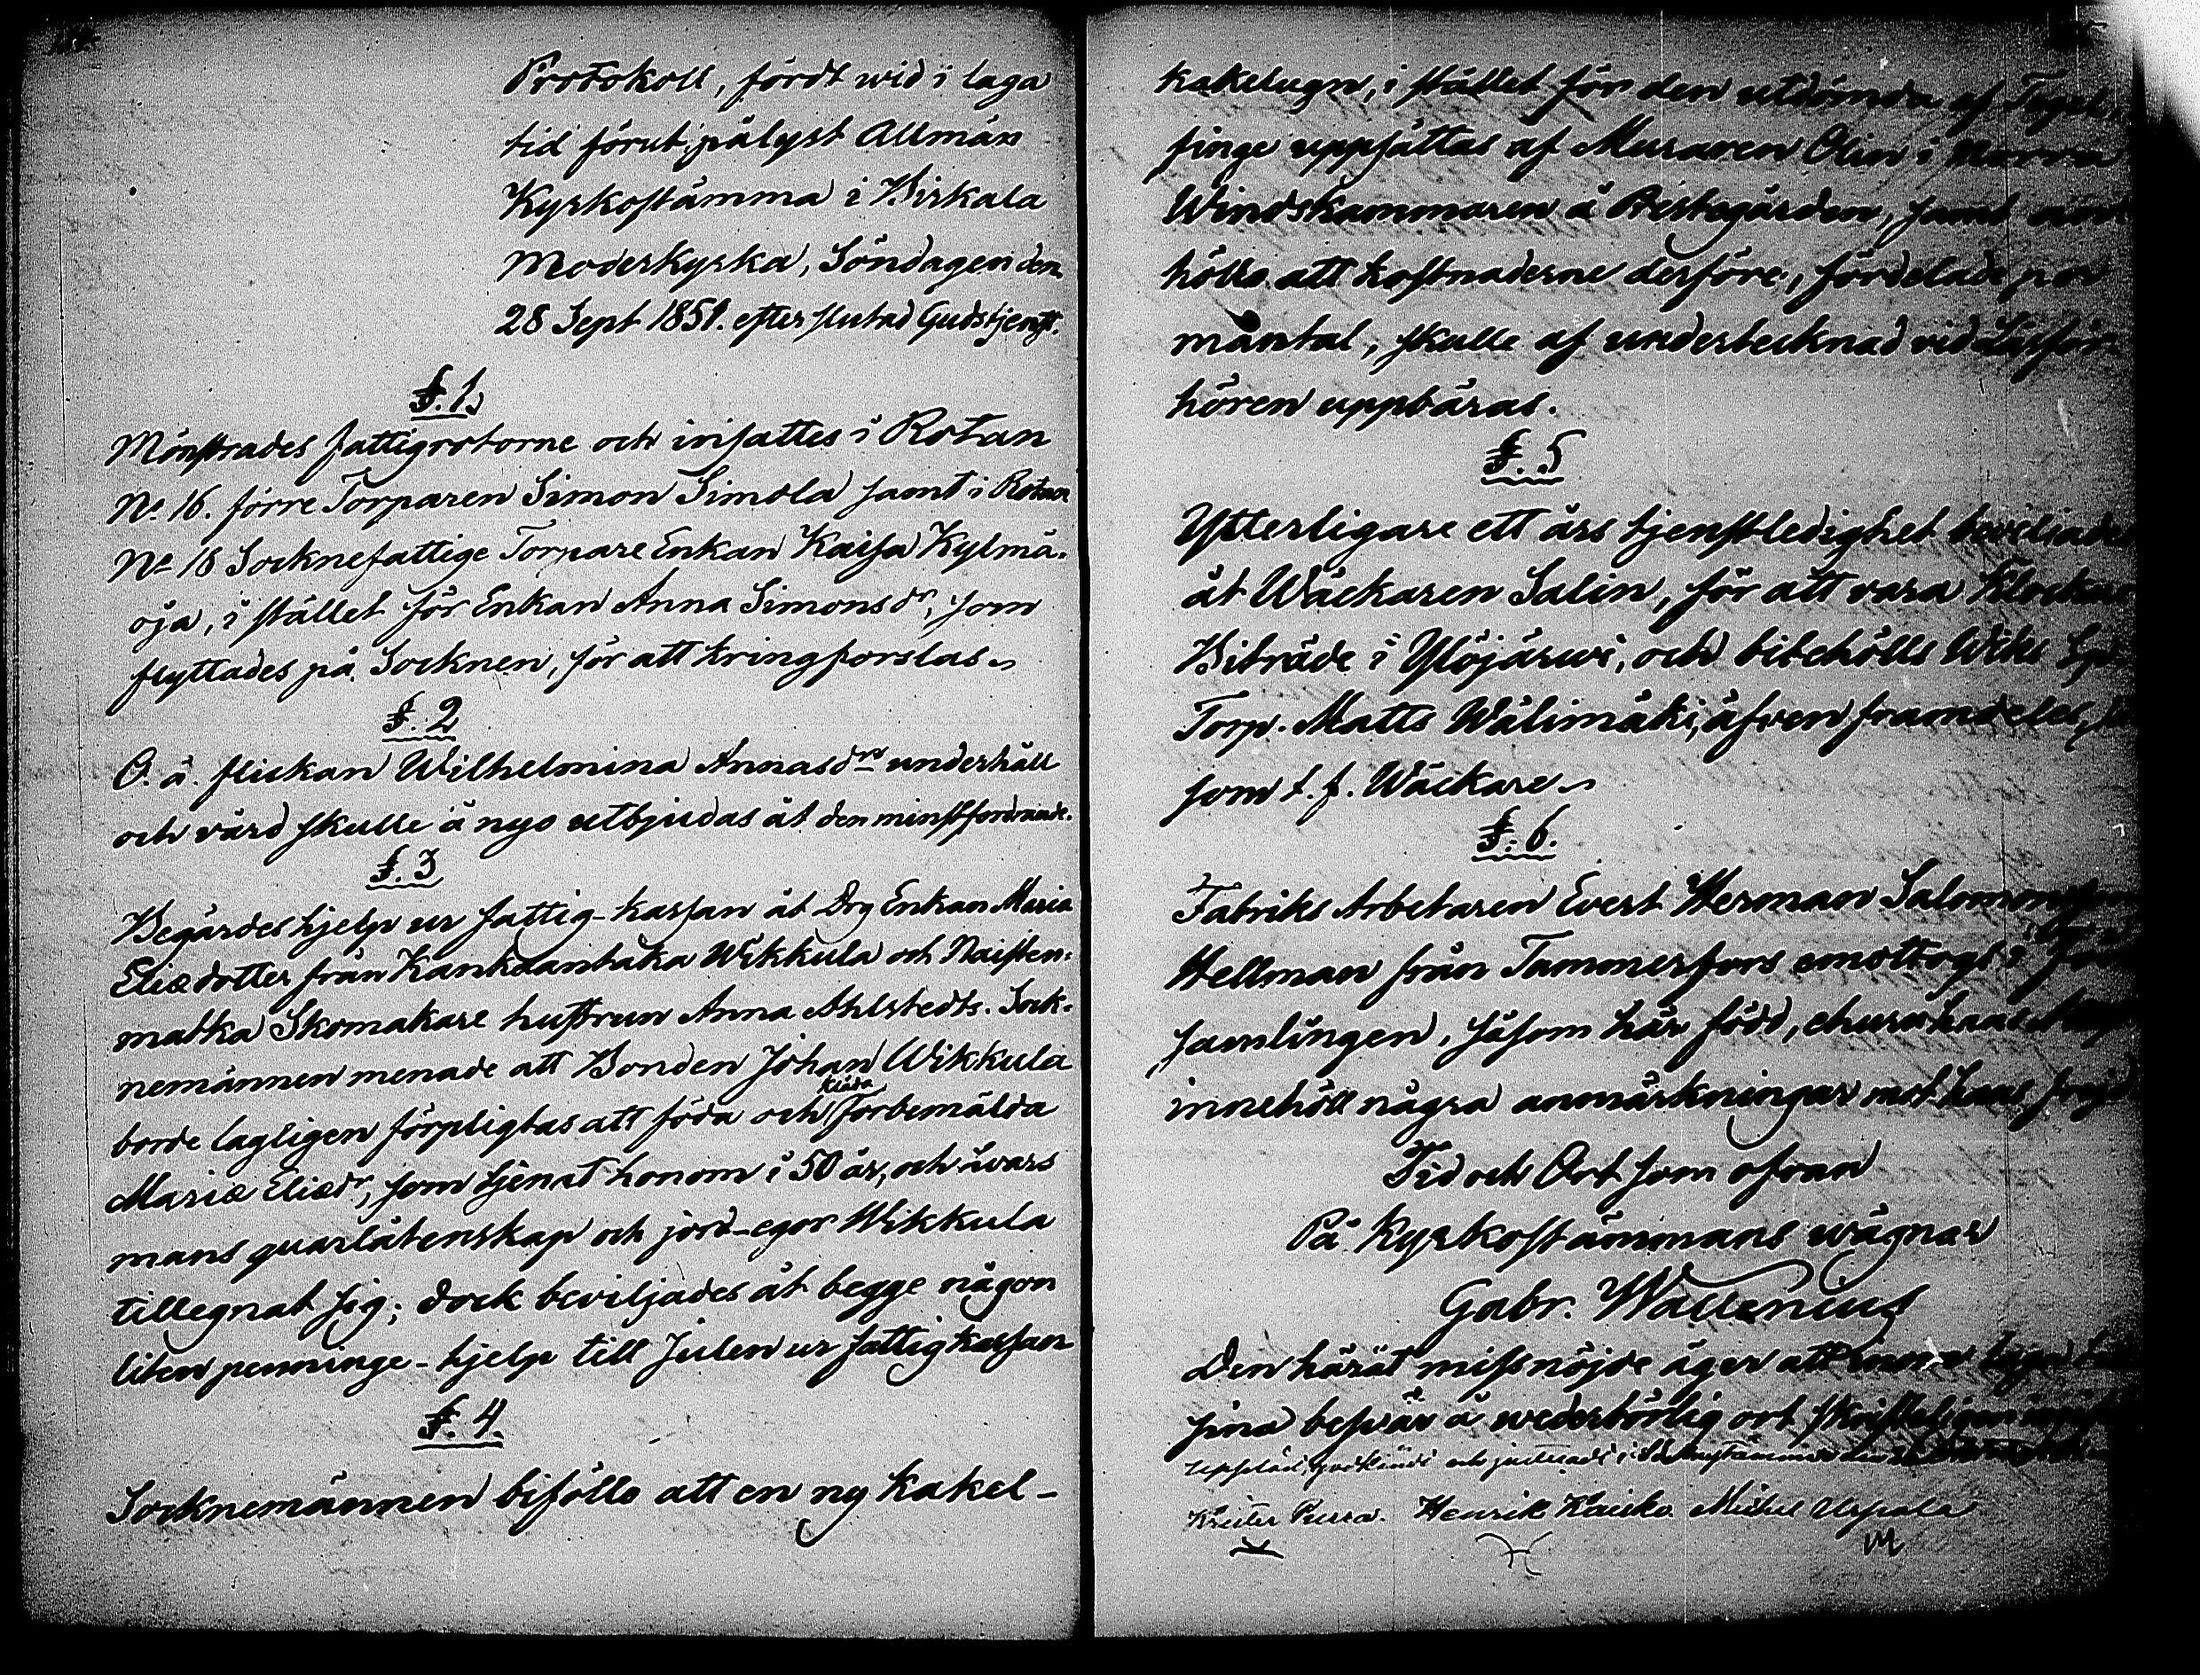 Protokoll, fördt wid i laga
tid förut pålyst Allmän
Kyrkostämma i Birkala
Moderkyrka, Söndagen den
28 Sept 1851. efter slutad Gudstjenst.
§. 1.
Mönstrades fattigrotorne och insattes i Rotan
No 16. förre Torparen Simon Simola samt i Rotan
No 18 Socknefattige Torpare Enkan Kaisa Kylmä-
oja, i stället för Enkan Anna Simonsdr, som
flyttades på Socknen, för att kringforslas.
§. 2
O. ä. flickan Wilhelmina Annasdrs underhåll
och vård skulle å nyo utbjudas åt den minstfordrande.
§. 3
Begärdes hjelp ur fattig-kassan åt Drg Enkan Maria
Eliædotter från Kankaantaka Wikkula och Naisten-
matka Skomakare hustrun Anna Ahlstedts. Sock-
nemännen menade att Bonden Johan Wikkula
borde lagligen förpligtas att föda och kläda förbemälda
Maria Eliædr, som tjenat honom i 50 år, och hvars
mans quarlåtenskap och jord-egor Wikkula
tillegnat sig; dock beviljades åt begge någon
liten penninge-hjelp till Julen ur fattigkassan
§. 4.
Socknemännen biföllo att en ny kakel-
kakelugn, i stället för den utdömda af
finge uppsättas af Muraren Olin i Norra
Windskammaren å Prestegården, samt
höllo att kostnaderne derföre, fördelade per
mantal, skulle af undertecknad vid Läsför-
hören uppbäras.
§. 5
Ytterligare ett års tjenstledighet beviljades
åt Wäckaren Salin, för att vara Klockare
Biträde i Ylöjärwi, och bibehölls Wiks
Torp. Matts Wälimäki, äfven framdeles,
som t. f. Wäckare.
§. 6.
Fabriks Arbetaren Evert Herman Salomonsson
Hellman från Tammerfors emottogs i för-
samlingen, såsom här född, ehuru hans
innehöll några anmärkningar mot hans frejd
Tid och Ort som ofvan
På Kyrkostämmans wägnar
Gabr. Wallenius
Den häråt missnöjde äger att inom laga
sina besvär å wederbörlig ort
Uppläst, godkändt och justeradt i Sockenstämma den
Krister Purra. Henrik Kaisko. Michel Uspala